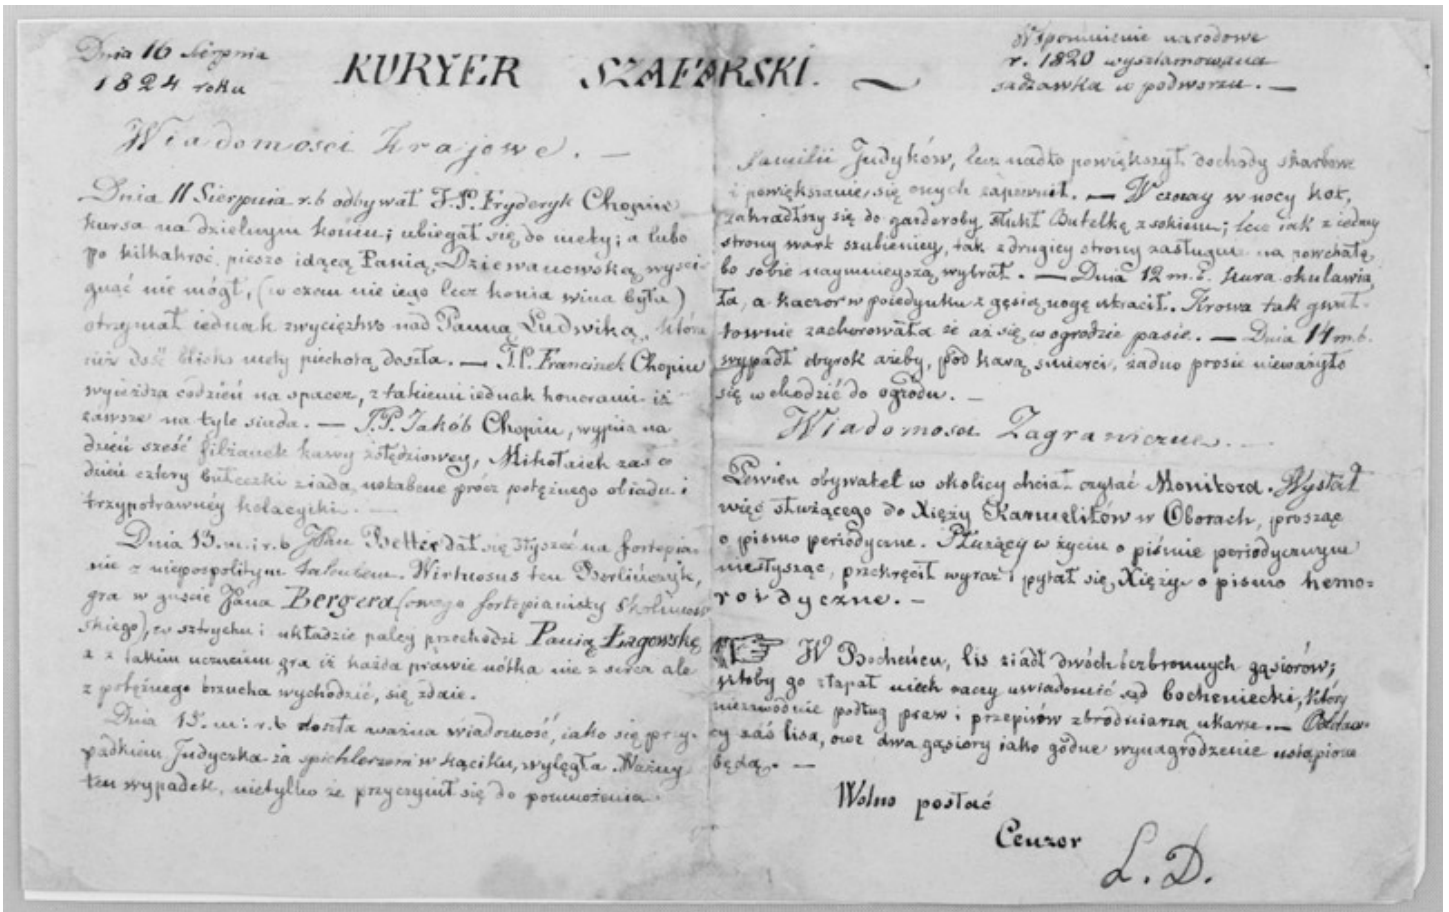 Dnia 16 Sierpnia
1824 roku
KURYER SZAFARSKI.
Wspomnienie narodowe
r. 1820 wyszlamowana
sadzawka w podworzu. —
Wiadomosci Krajowe. —
Dnia 11 Sierpnia r. b odbywał J. P. Fryderyk Chopin
kursa na dzielnym koniu; ubiegał się do mety; a lubo
po kilkakroć pieszo idącą Panią Dziewanowską wyści-
gnąć nie mógł, (w czem nie iego lecz konia wina była)
otrzymał iednak zwycięztwo nad Panną Ludwiką, która
iuż dość blisko mety piechotą doszła. — J. P. Franciszek Chopin
wyieżdża codzień na spacer, z takiemi iednak honorami iż
zawsze na tyle siada. — J. P. Jakób Chopin, wypiia na
dzień sześć filiżanek kawy żołędziowey, Mikołaiek zaś co
dzień cztery bułeczki ziada, notabene prócz potężnego obiadu i
trzypotrawnéy kolacyiki. —
Dnia 13. m. i r. b JPan Better dał się słyszeć na fortepia-
nie z niepospolitym talentem. Wirtuosus ten Berlińczyk,
gra w guście JPana Bergera (owego fortepianisty Skolimow-
skiego), w sztrychu i układzie palcy przechodzi Panią Łagowskę
a z takim uczuciem gra iż każda prawie nótka nie z serca ale
z potężnego brzucha wychodzić, się zdaie.
Dnia 15. m: r. b doszła ważna wiadomość, iako się przy-
padkiem Judyczka za spichlerzem w kąciku, wylęgła. Ważny
ten wypadek, nietylko że przyczynił się do pomnożenia
familii Judyków, lecz nadto powiększył dochody skarbowe
i powiększanie się onych zapewnił. — Wczoray w nocy kot,
zakradłszy się do garderoby stłukł Butelkę z sokiem; lecz iak z iedney
strony wart szubienicy, tak z drugiey strony zasługuie na pochwałę
bo sobie naymnieyszą wybrał. — Dnia 12 m. b. kura okulawia-
ła, a kaczor w poiedynku z gęsią nogę utracił. Krowa tak gwał-
townie zachorowała że aż się w ogrodzie pasie. — Dnia 14 m. b.
wypadł wyrok ażeby, pod karą śmierci, żadne prosie nieważyło
się wchodzić do ogrodu. —
Wiadomosci Zagraniczne. —
Pewien obywatel w okolicy chciał czytać Monitora. Wysłał
więc służącego do Xięży Karmelitów w Oborach, prosząc
o pismo periodyczne. Służący w życiu o piśmie periodycznym
niesłysząc, przekręcił wyraz i pytał się Xięży o pismo hemo-
roidyczne. —
W Bocheńcu, lis ziadł dwóch bezbronnych gąsiorów;
ktoby go złapał niech raczy uwiadomić sąd bocheniecki, który
niezawodnie podług praw i przepisów zbrodniarza ukarze. — Oddaw-
cy zaś lisa, owe dwa gąsiory iako godne wynagrodzenie ustąpione
będą. —
Wolno posłać
Cenzor
L. D.